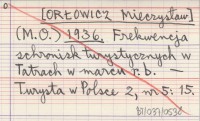 [ORŁOWICZ Mieczysław]
(M.O.) 1936. Frekwencja
schronisk turystycznych w
Tatrach w marcu r.b. —
Turysta w Polsce 2, nr 5: 15.